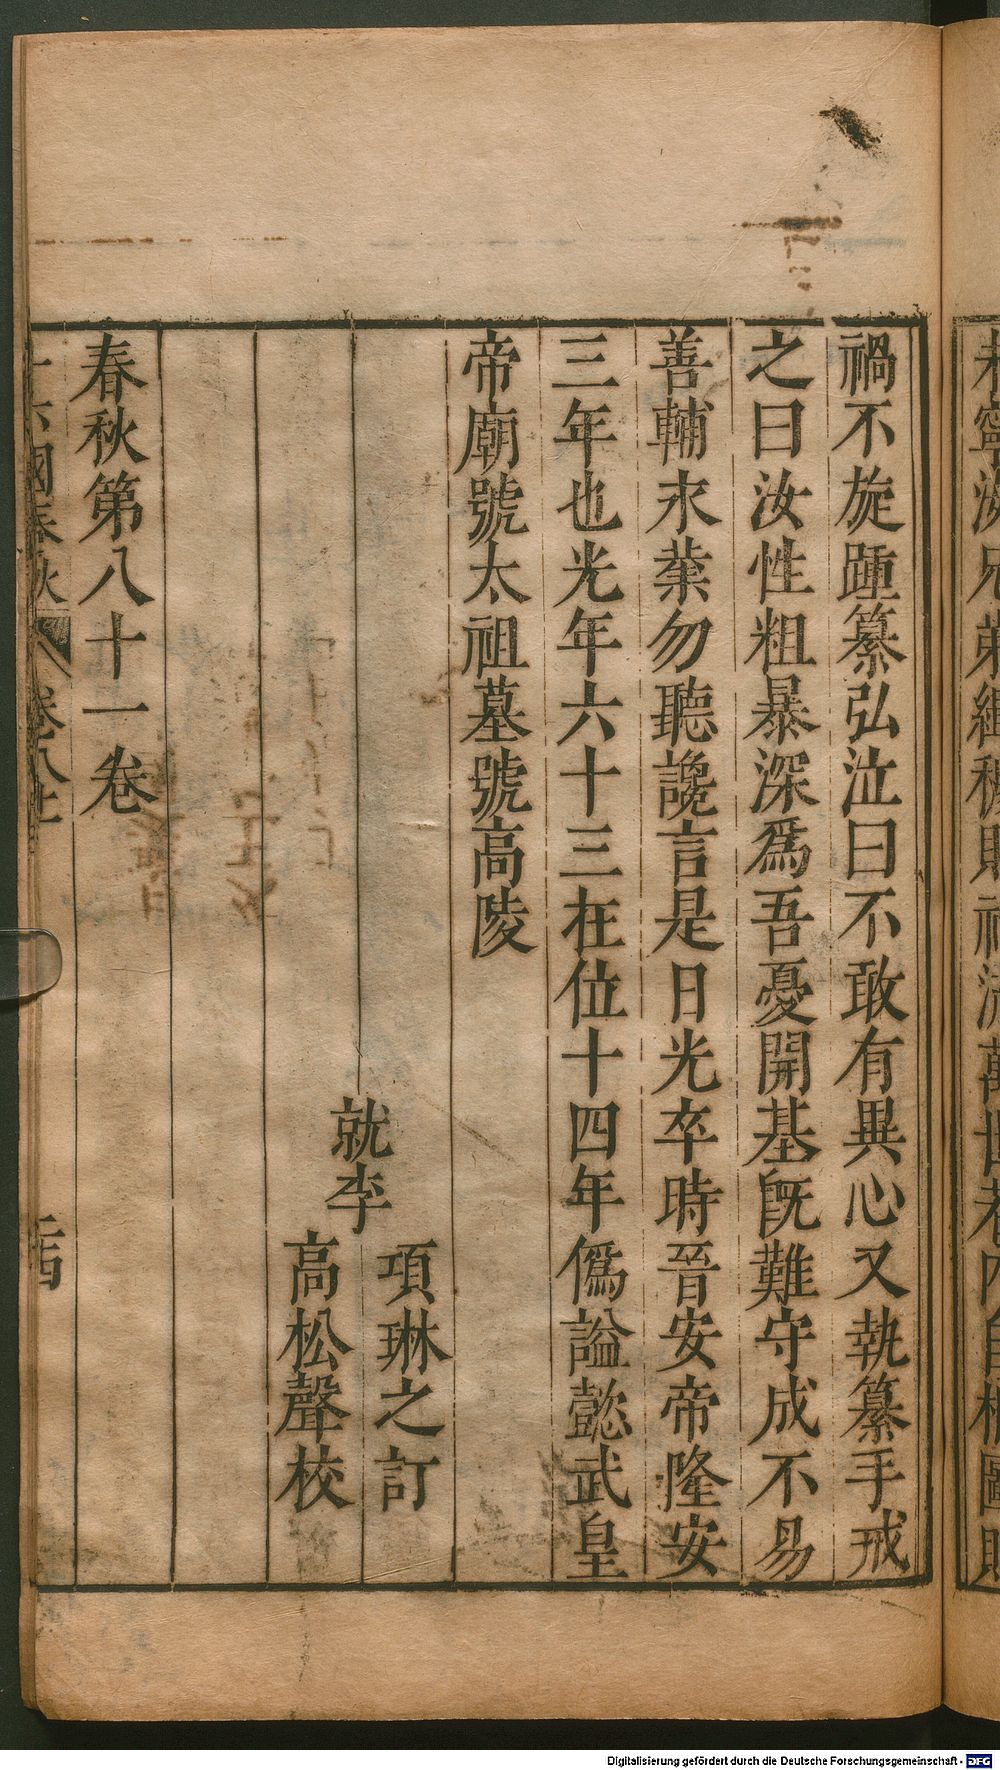 禍不旋踵纂弘泣曰不敢有異心又執纂手戒
之曰汝性粗暴深爲吾憂開基旣難守成不易
善輔永業勿聽讒言是日光卒時晉安帝隆安
三年也光年六十三在位十四年僞謚懿武皇
帝廟號太祖墓號高陵
就李
項琳之訂
高松聲校
春秋第八十一卷
十六國春秋
卷八十一
十四
Digitalisierung gefördert durch die Deutsche Forschungsgemeinschaft - DFG